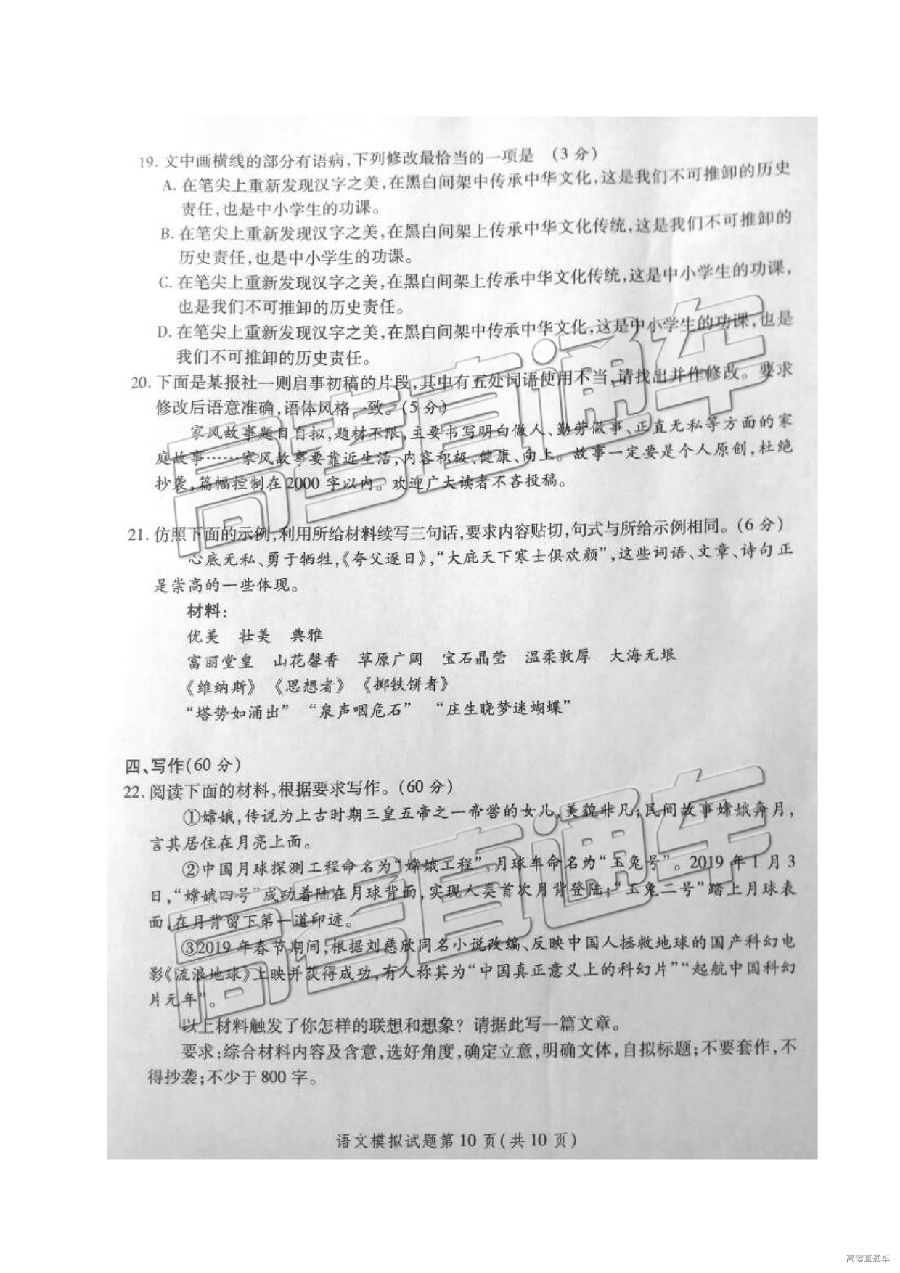 19. 文中画横线的部分有语病,下列修改最恰当的一项是 (3分)
A. 在笔尖上重新发现汉字之美,在黑白间架中传承中华文化,这是我们不可推卸的历史
责任,也是中小学生的功课。
B. 在笔尖上重新发现汉字之美,在黑白间架上传承中华文化传统,这是我们不可推卸的
历史责任,也是中小学生的功课。
C. 在笔尖上重新发现汉字之美,在黑白间架上传承中华文化传统,这是中小学生的功课,
也是我们不可推卸的历史责任。
D. 在笔尖上重新发现汉字之美,在黑白间架中传承中华文化,这是中小学生的功课,也是
我们不可推卸的历史责任。
20. 下面是某报社一则启事初稿的片段,其中有五处词语使用不当,请找出并作修改。要求
修改后语意准确,语体风格一致。(5分)
家风故事题目自拟,题材不限,主要书写明白做人、勤劳做事、正直无私等方面的家
庭故事……家风故事要靠近生活,内容积极、健康、向上。故事一定要是个人原创,杜绝
抄袭,篇幅控制在2000字以内。欢迎广大读者不吝投稿。
21. 仿照下面的示例,利用所给材料续写三句话,要求内容贴切,句式与所给示例相同。(6分)
心底无私、勇于牺牲,《夸父逐日》,“大庇天下寒士俱欢颜”,这些词语、文章、诗句正
是崇高的一些体现。
材料:
优美 壮美 典雅
富丽堂皇 山花馨香 草原广阔 宝石晶莹 温柔敦厚 大海无垠
《维纳斯》 《思想者》 《掷铁饼者》
“塔势如涌出” “泉声咽危石” “庄生晓梦迷蝴蝶”
四、写作(60分)
22. 阅读下面的材料,根据要求写作。(60分)
①嫦娥,传说为上古时期三皇五帝之一帝喾的女儿,美貌非凡;民间故事嫦娥奔月,
言其居住在月亮上面。
②中国月球探测工程命名为“嫦娥工程”,月球车命名为“玉兔号”。2019年1月3
日,“嫦娥四号”成功着陆在月球背面,实现人类首次月背登陆;“玉兔二号”踏上月球表
面,在月背留下第一道印迹。
③2019年春节期间,根据刘慈欣同名小说改编、反映中国人拯救地球的国产科幻电
影《流浪地球》上映并获得成功,有人称其为“中国真正意义上的科幻片”“起航中国科幻
片元年”。
以上材料触发了你怎样的联想和想象?请据此写一篇文章。
要求:综合材料内容及含意,选好角度,确定立意,明确文体,自拟标题;不要套作,不
得抄袭;不少于800字。
语文模拟试题第10页(共10页)
高考直通车
高考直通车
高考直通车